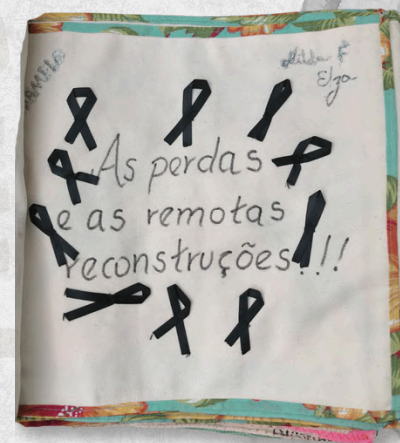 Hilda F
Elza
As perdas
e as remotas
reconstruções!!!